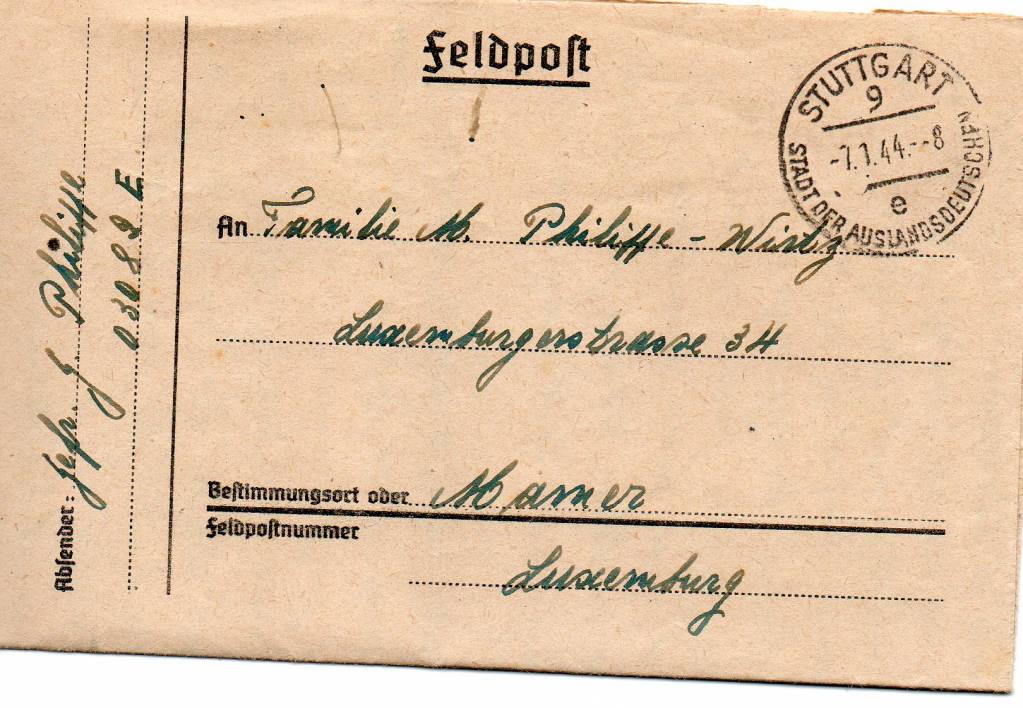 Feldpost
STUTTGART
9
-7.1.44.--8
e
STADT DER AUSLANDSDEUTSCHEN
An Familie M. Philippe - Wirtz
Luxemburgerstrasse 34
Bestimmungsort oder Mamer
Feldpostnummer
Luxemburg
Absender: Gefr. J. Philippe
03082 E